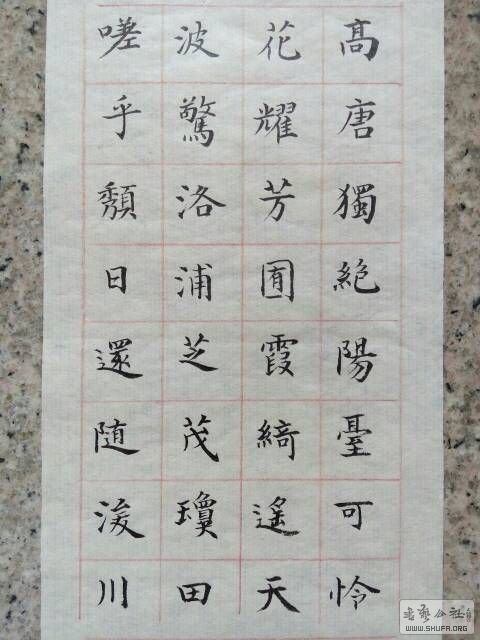 髙唐獨絶陽臺可怜
花耀芳囿霞綺遙天
波驚洛浦芝茂瓊田
嗟乎頽日還随湲川
WWW.SHUFA.ORG